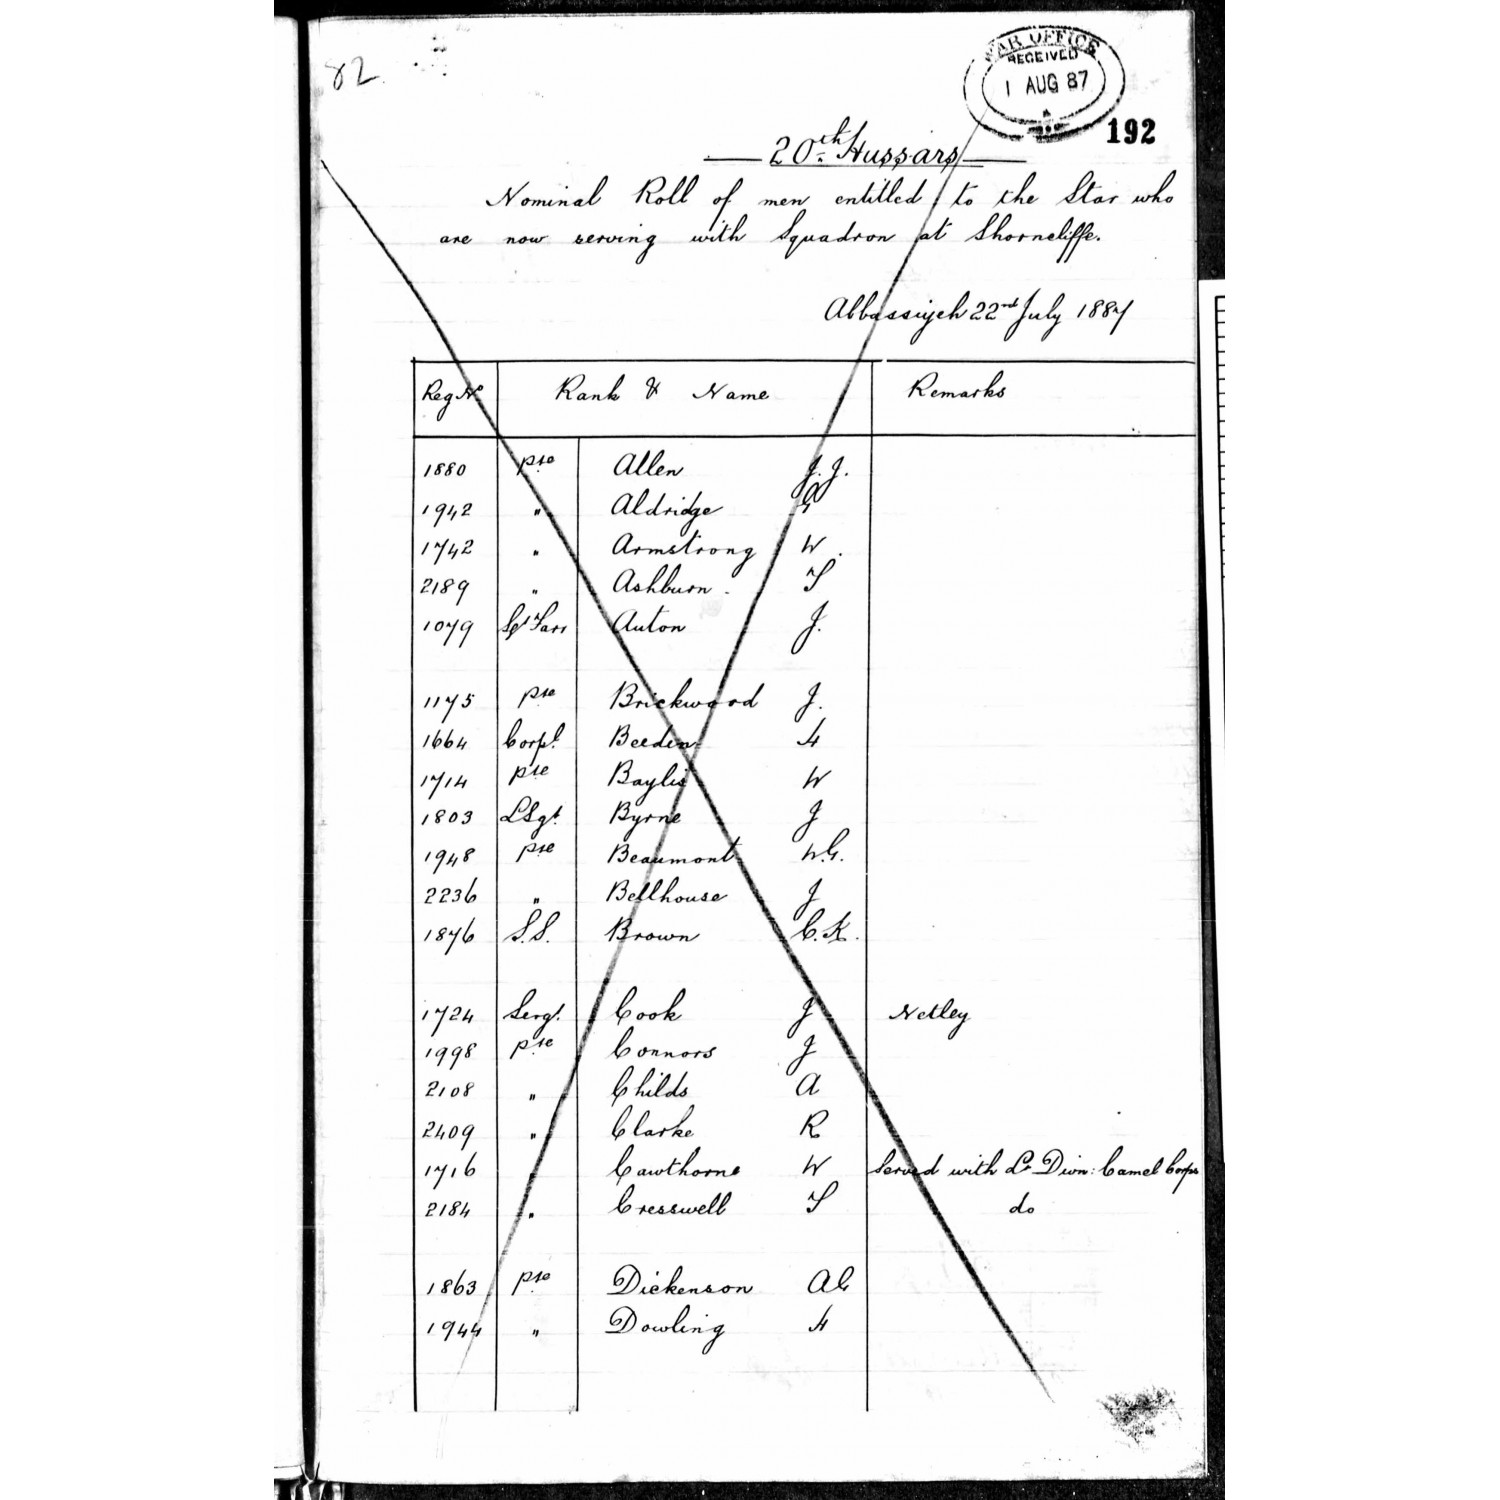 82.
WAR OFFICE
RECEIVED
1 AUG 87
A
192
20th Hussars
Nominal Roll of men entitled to the Star who
are now serving with Squadron at Shorncliffe.
Abbassiyeh 22nd July 1887
Reg No Rank & Name Remarks
1880 Pte Allen J. J.
1942 " Aldridge
1742 " Armstrong W.
2189 " Ashburn T
1079 Sgt Farr Auton J.
1175 Pte Brickwood J.
1664 Corpl. Beeden H
1714 Pte Baylis W
1803 LSgt. Byrne J
1948 Pte Beaumont W.G.
2236 " Bellhouse J
1876 S.S. Brown C.K.
1724 Sergt. Cook J Netley
1998 Pte Connors J
2108 " Childs A
2409 " Clarke R
1716 " Cawthorne W Served with Lt Divn: Camel Corps
2184 " Cresswell T do
1863 Pte Dickenson AG
1944 " Dowling H